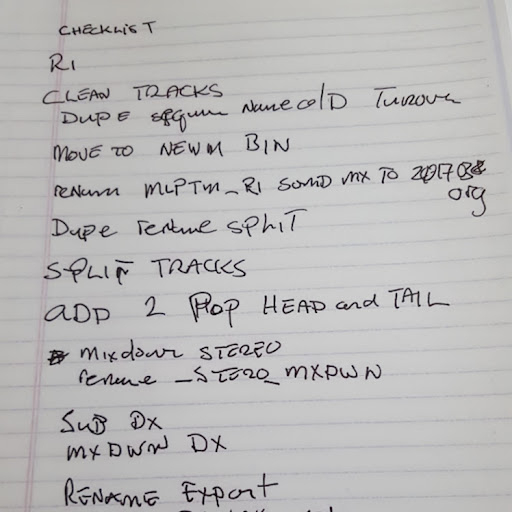 CHECKLIST
R1
CLEAN TRACKS
DUPE Name OLD Turnover
MOVE TO NEW BIN
rename MLPTM_R1 SOUND MX TO
org
Dupe rename SPLIT
SPLIT TRACKS
ADD 2 POP HEAD and TAIL
mixdown STEREO
rename _STERO_MXDWN
SUB DX
MXDWN DX
RENAME Export